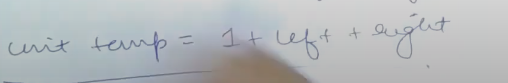 unit temp = 1 + left + right